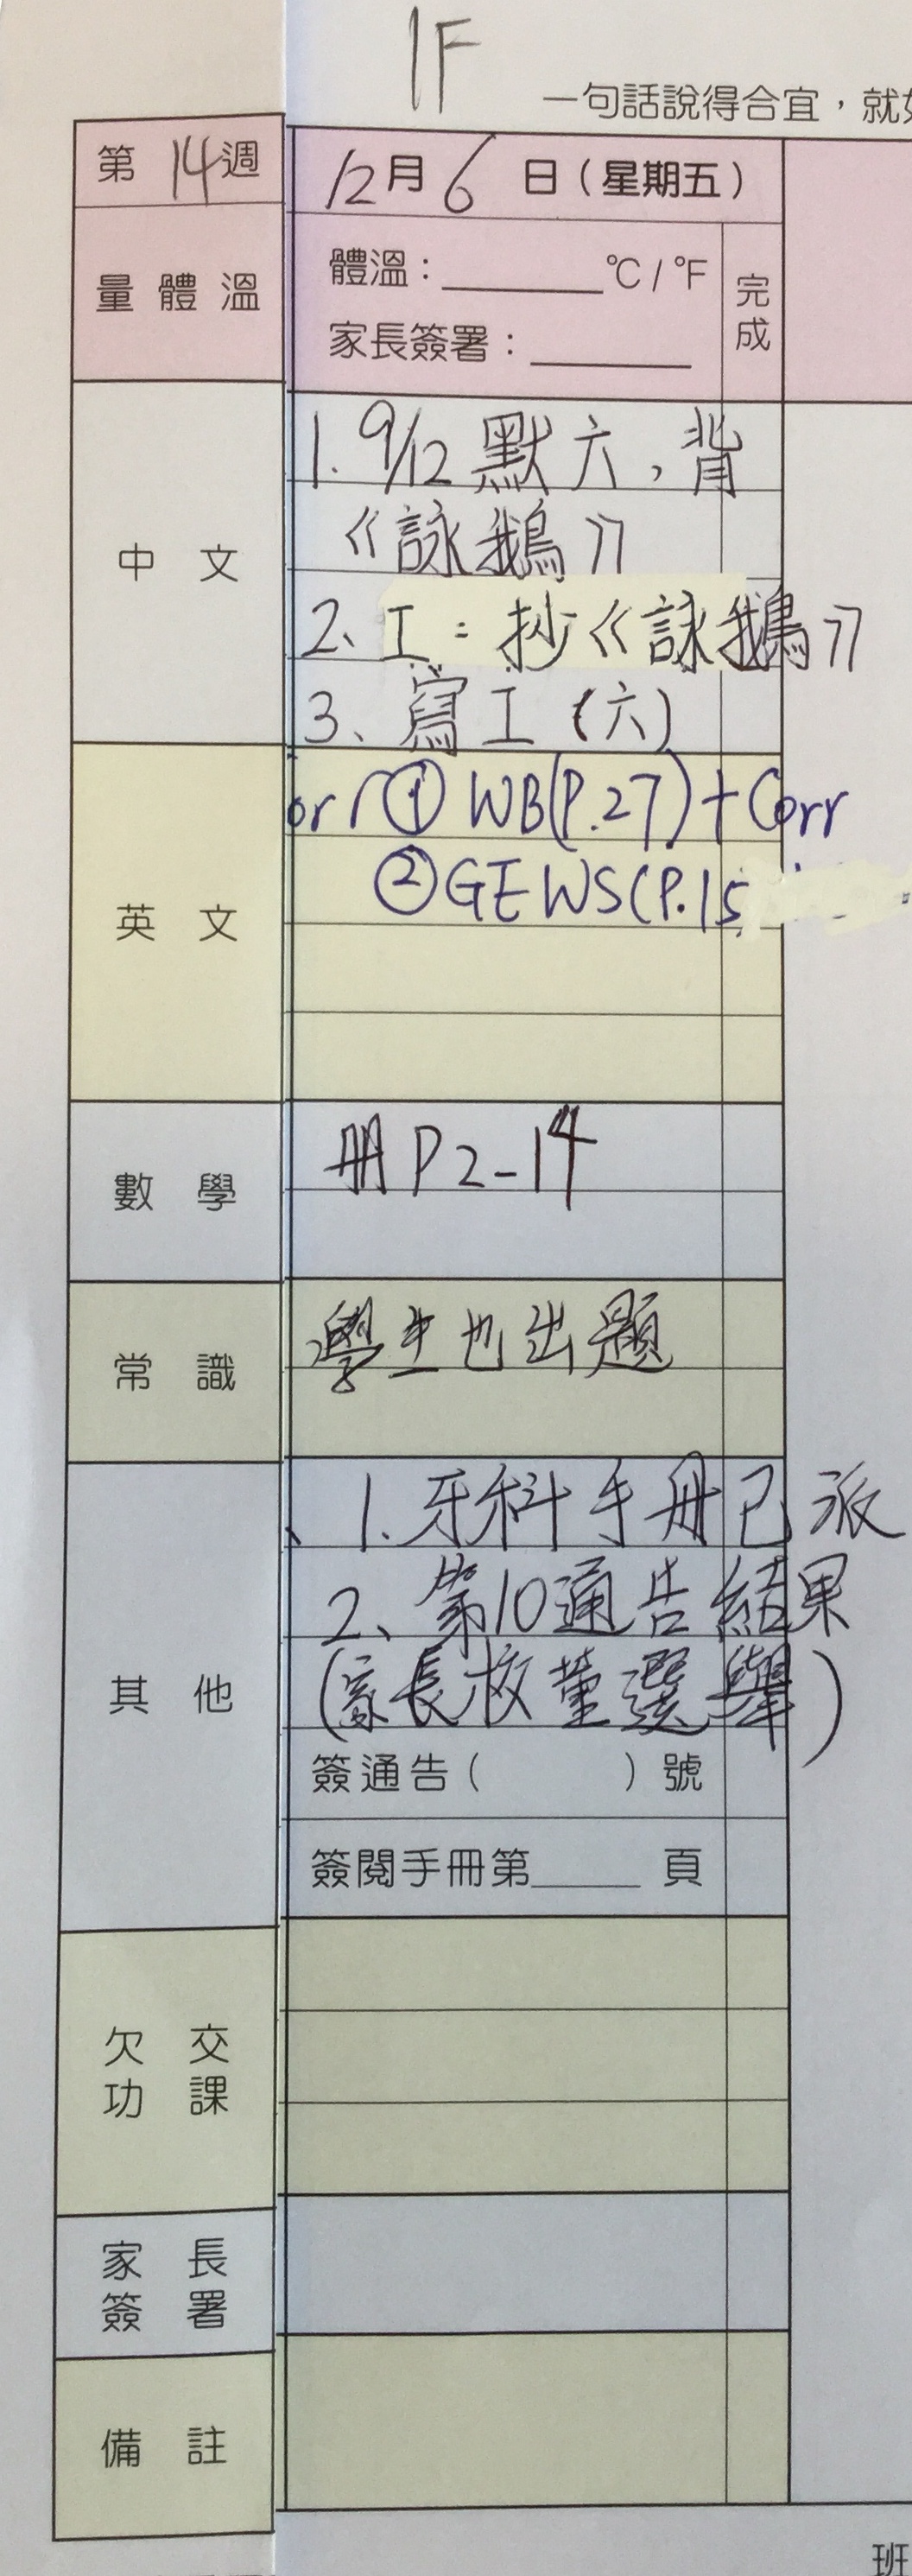 1F
一句話說得合宜，就
第 14 週
12月6日（星期五）
量體溫
體溫：______°C / °F
完成
家長簽署：______
中文
1. 9/12 默六，背
《詠鵝》
2、工：抄《詠鵝》
3、寫工（六）
英文
orr ① WB(P.27)+Corr
② GE WS(P.15
數學
冊 P2-14
常識
學生也出題
其他
、1. 牙科手冊已派
2、第10通告結果
(家長校董選舉)
簽通告（ ）號
簽閱手冊第______頁
欠交
功課
家長
簽署
備註
班